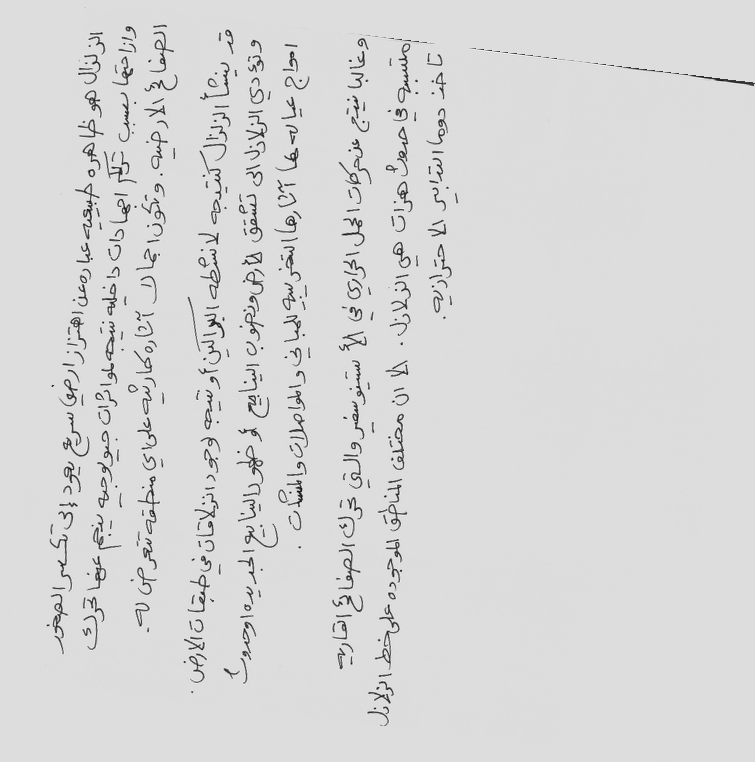 الزلزال هو ظاهره طبيعيه عباره عن اهتزاز ارضي سريع يعود إلى تكسر الصخور
وازاحتها بسبب تراكم اجهادات داخليه نتيجه لمؤثرات جيولوجيه ينجم عنها تحرك
الصفائح الارضيه. وتكون اجمالا آثاره كارثيه على اي منطقه تتعرض له.
قد ينشأ الزلزال كنتيجه لانشطه البراكين أو نتيجه لوجود انزلاقات في طبقات الارض.
وتؤدي الزلازل الى تشقق الأرض ونضوب الينابيع أو ظهور الينابيع الجديده او حدوث
امواج عاليه لها آثارها التخريبيه للمباني والمواصلات والمنشآت.
وغالبا ينتج عن حركات الحمل الحراري في الأستينوسفير والتي تحرك الصفائح القاريه
متسببه في حدوث هزات هي الزلازل. الا ان مختلف المناطق الموجوده على خط الزلازل
تاخذ دوما التدابير الاحترازيه.